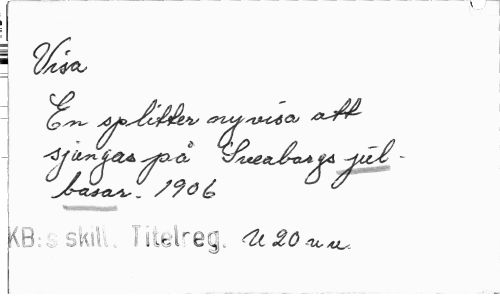 Visa
En splitter ny visa att
sjungas på Sveaborgs jul-
basar. 1906
KB:s skill. Titelreg. U 20 u u.